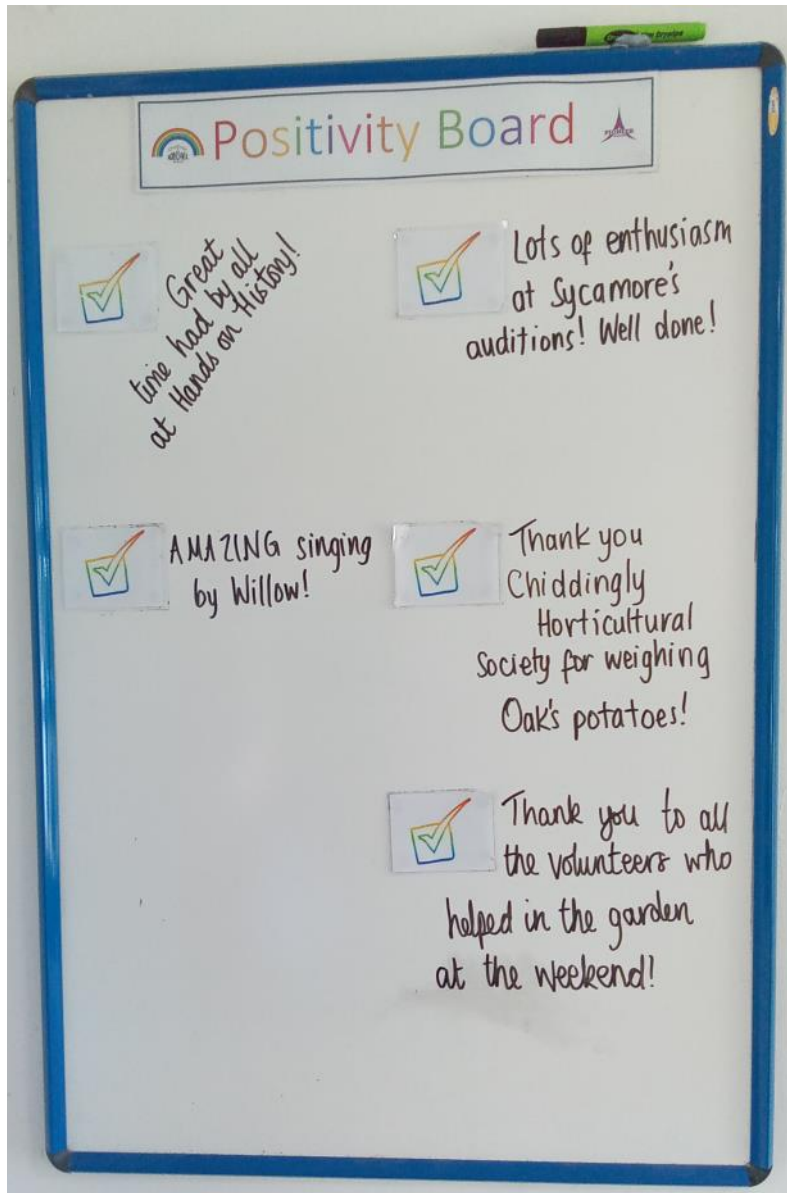 Positivity Board
Great
time had by all
at Hands on History!
Lots of enthusiasm
at Sycamore's
auditions! Well done!
AMAZING singing
by Willow!
Thank you
Chiddingly
Horticultural
Society for weighing
Oak's potatoes!
Thank you to all
the volunteers who
helped in the garden
at the weekend!